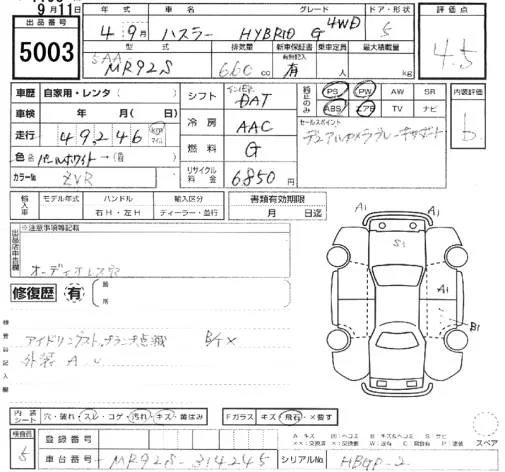 9月11日
出品番号
5003
年式 車名 グレード ドア・形状 評価点
4 9月 ハスラー HYBRID G 4WD 5
4.5
型式 排気量 新車保証書 乗車定員 最大積載量
有無記入
5AA
MR92S 660 cc 有 人 kg
車歴 自家用・レンタ( )
車検 年 月( 日)
走行 49,246 km マイル
色 パールホワイト→(替)
カラーNo ZVR
シフト インパネ DAT
冷房 AAC
燃料 G
リサイクル料金 6850円
純正のみ PS PW AW SR
ABS エアB TV ナビ
セールスポイント
デュアルカメラブレーキサポート
内装評価
b
輸入車 モデル年式 ハンドル 輸入区分
右H・左H ディーラー・並行
書類有効期限
月 日迄
出品店申告欄
※注意事項等記載
オーディオレス
修復歴 有 箇所
検査員記入欄
アイドリングスト B/T×
外装 A U
A1 A1
S1
A1
B1
内装シート 穴・破れ・スレ・コゲ・汚れ・キズ・黄ばみ
Fガラス キズ・飛石・×要す
スペア
検査員
5
登録番号
車台番号 MR92S-314245
シリアルNo HBGP-2
A キズ U ヘコミ B キズ&ヘコミ S サビ
××:交換済 ×:交換要 W:波有 C:腐食有 P:塗装